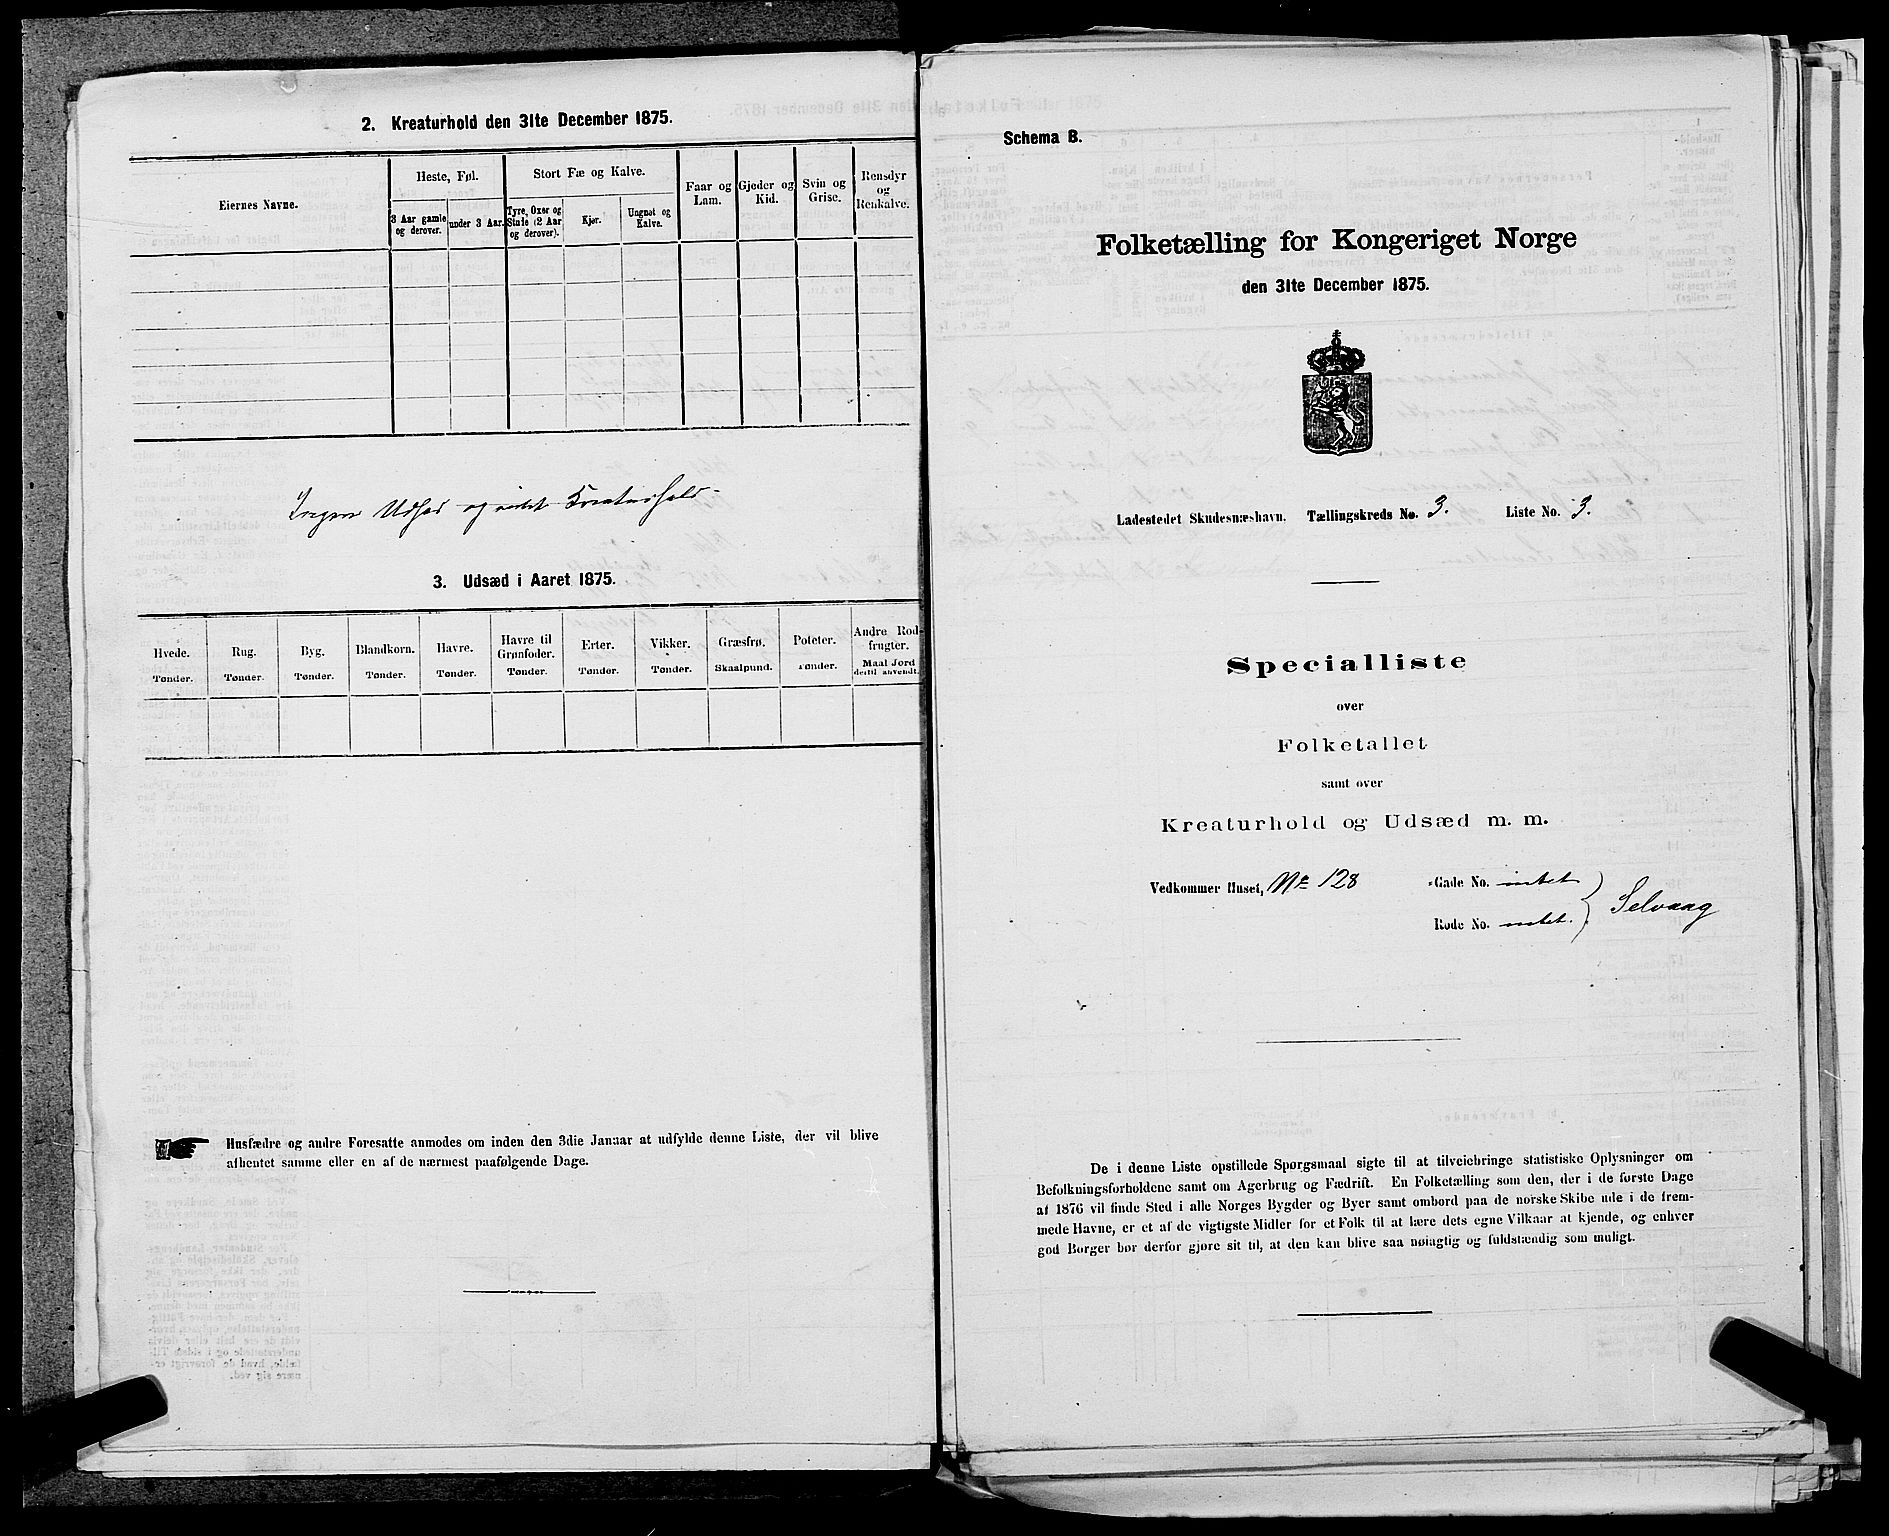 2. Kreaturhold den 31te December 1875.
Eiernes Navne.
Heste, Føl.
3 Aar gamle og derover.
under 3 Aar.
Stort Fæ og Kalve.
Tyre, Oxer og Stude (2 Aar og derover).
Kjør.
Ungnøt og Kalve.
Faar og Lam.
Gjeder og Kid.
Svin og Grise.
Rensdyr og Renkalve.
Ingen Udsæd og intet Kreaturhold
3. Udsæd i Aaret 1875.
Hvede. Tønder.
Rug. Tønder.
Byg. Tønder.
Blandkorn. Tønder.
Havre. Tønder.
Havre til Grønfoder. Tønder.
Erter. Tønder.
Vikker. Tønder.
Græsfrø. Skaalpund.
Poteter. Tønder.
Andre Rodfrugter. Maal Jord dertil anvendt.
Husfædre og andre Foresatte anmodes om inden den 3die Januar at udfylde denne Liste, der vil blive
afhentet samme eller en af de nærmest paafølgende Dage.
Schema B.
Folketælling for Kongeriget Norge
den 31te December 1875.
Ladestedet Skudesnæshavn. Tællingskreds No. 3. Liste No. 3.
Specialliste
over
Folketallet
samt over
Kreaturhold og Udsæd m. m.
Vedkommer Huset, No 128 -Gade No. intet
Rode No. intet. } Selvaag
De i denne Liste opstillede Spørgsmaal sigte til at tilveiebringe statistiske Oplysninger om
Befolkningsforholdene samt om Agerbrug og Fædrift. En Folketælling som den, der i de første Dage
af 1876 vil finde Sted i alle Norges Bygder og Byer samt ombord paa de norske Skibe ude i de frem-
mede Havne, er et af de vigtigste Midler for et Folk til at lære dets egne Vilkaar at kjende, og enhver
god Borger bør derfor gjøre sit til, at den kan blive saa nøiagtig og fuldstændig som muligt.